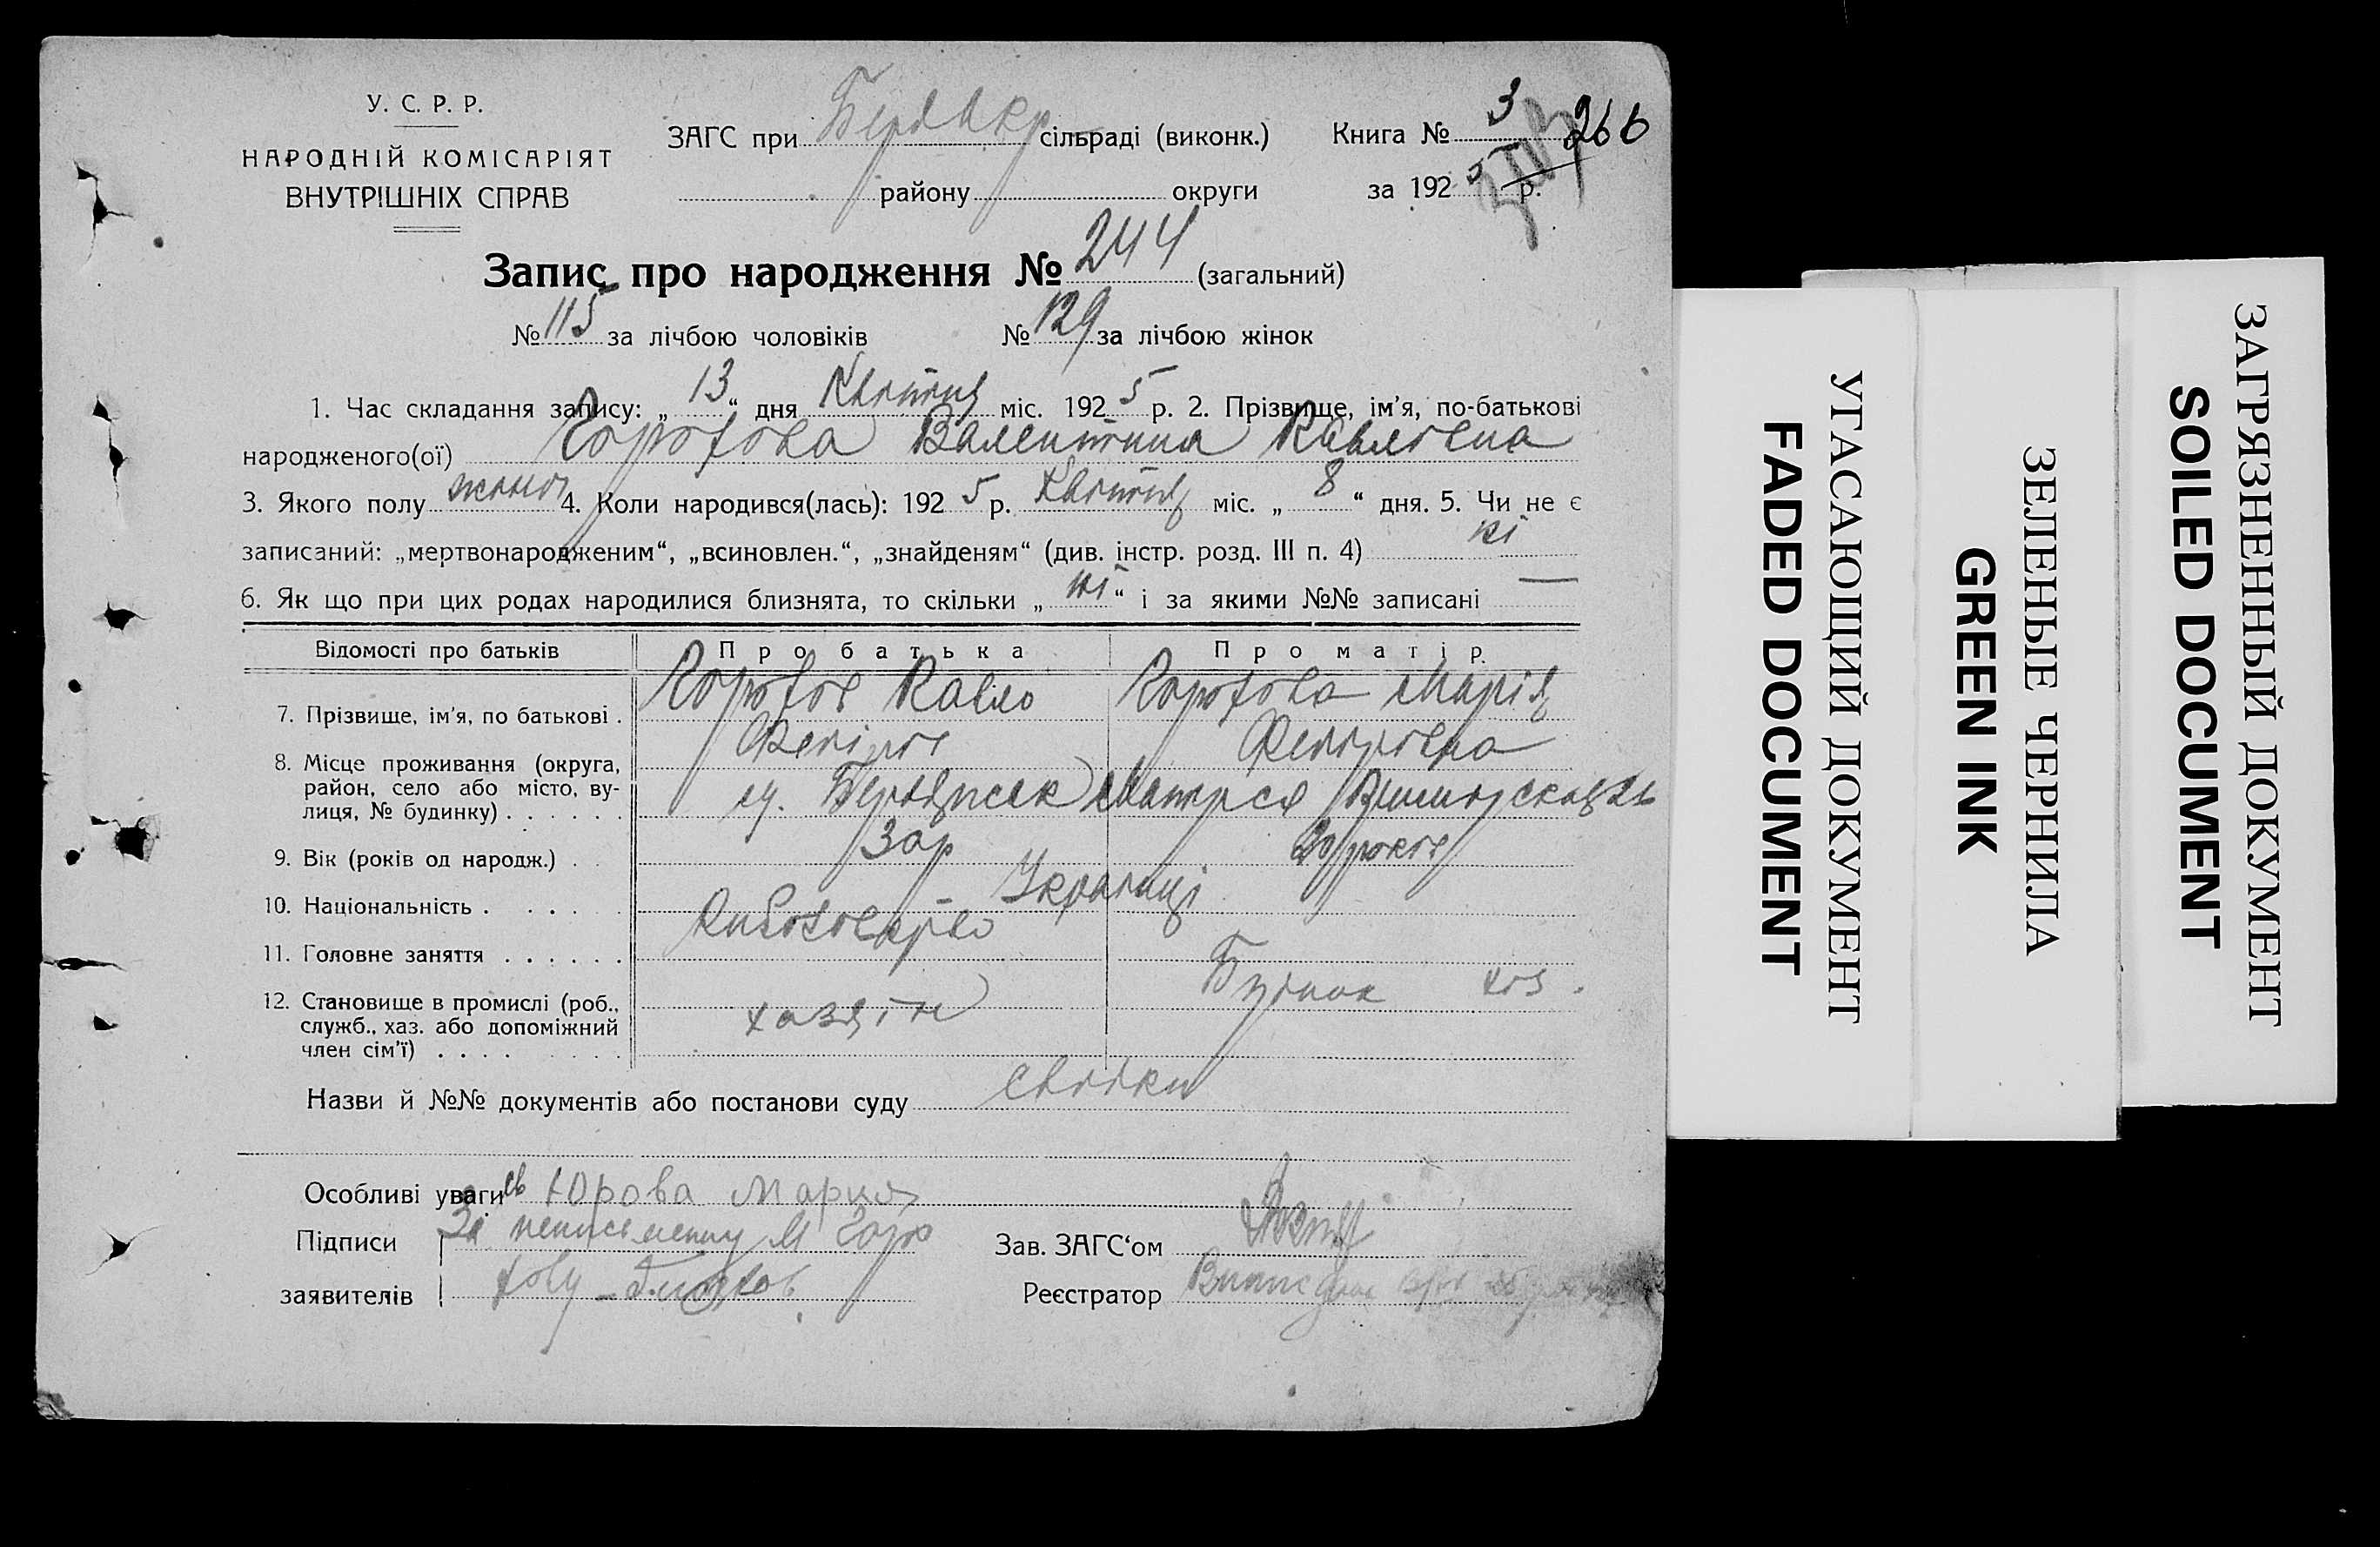 У. С. Р. Р.
НАРОДНІЙ КОМІСАРІЯТ
ВНУТРІШНІХ СПРАВ
ЗАГС при сільраді (виконк.)
району округи
Книга № 3 266
за 192 5 р.
Запис про народження № 244 (загальний)
№ 115 за лічбою чоловіків № 129 за лічбою жінок
1. Час складання запису: „ 13 “ дня Квітня міс. 192 5 р. 2. Прізвище, ім'я, по-батькові
народженого(ої) Горохова Валентина Павловна
3. Якого полу жіноч 4. Коли народився(лась): 192 5 р. Квітня міс. „ 8 “ дня. 5. Чи не є
записаний: „мертвонародженим“, „всиновлен.“, „знайденям“ (див. інстр. розд. III п. 4) ні
6. Як що при цих родах народилися близнята, то скільки „ ні “ і за якими №№ записані —
Відомості про батьків Про батька Про матір
7. Прізвище, ім'я, по батькові . Горохов Павло Горохова Марія
Федоровна
8. Місце проживання (округа,
район, село або місто, ву-
лиця, № будинку) . . . . . .
9. Вік (років од народж.) . 30 р 20 років
10. Національність . . . . . Українці
11. Головне заняття . . . . . .
12. Становище в промислі (роб.,
служб., хаз. або допоміжний
член сім'ї) . . . . . . . . хазяїн
Назви й №№ документів або постанови суду Свідки
Особливі уваги Юрова Мария
Підписи За неписьменну М Горо
заявителів хову
Зав. ЗАГС'ом
Реєстратор
УГАСАЮЩИЙ ДОКУМЕНТ
FADED DOCUMENT
ЗЕЛЕНЫЕ ЧЕРНИЛА
GREEN INK
ЗАГРЯЗНЕННЫЙ ДОКУМЕНТ
SOILED DOCUMENT